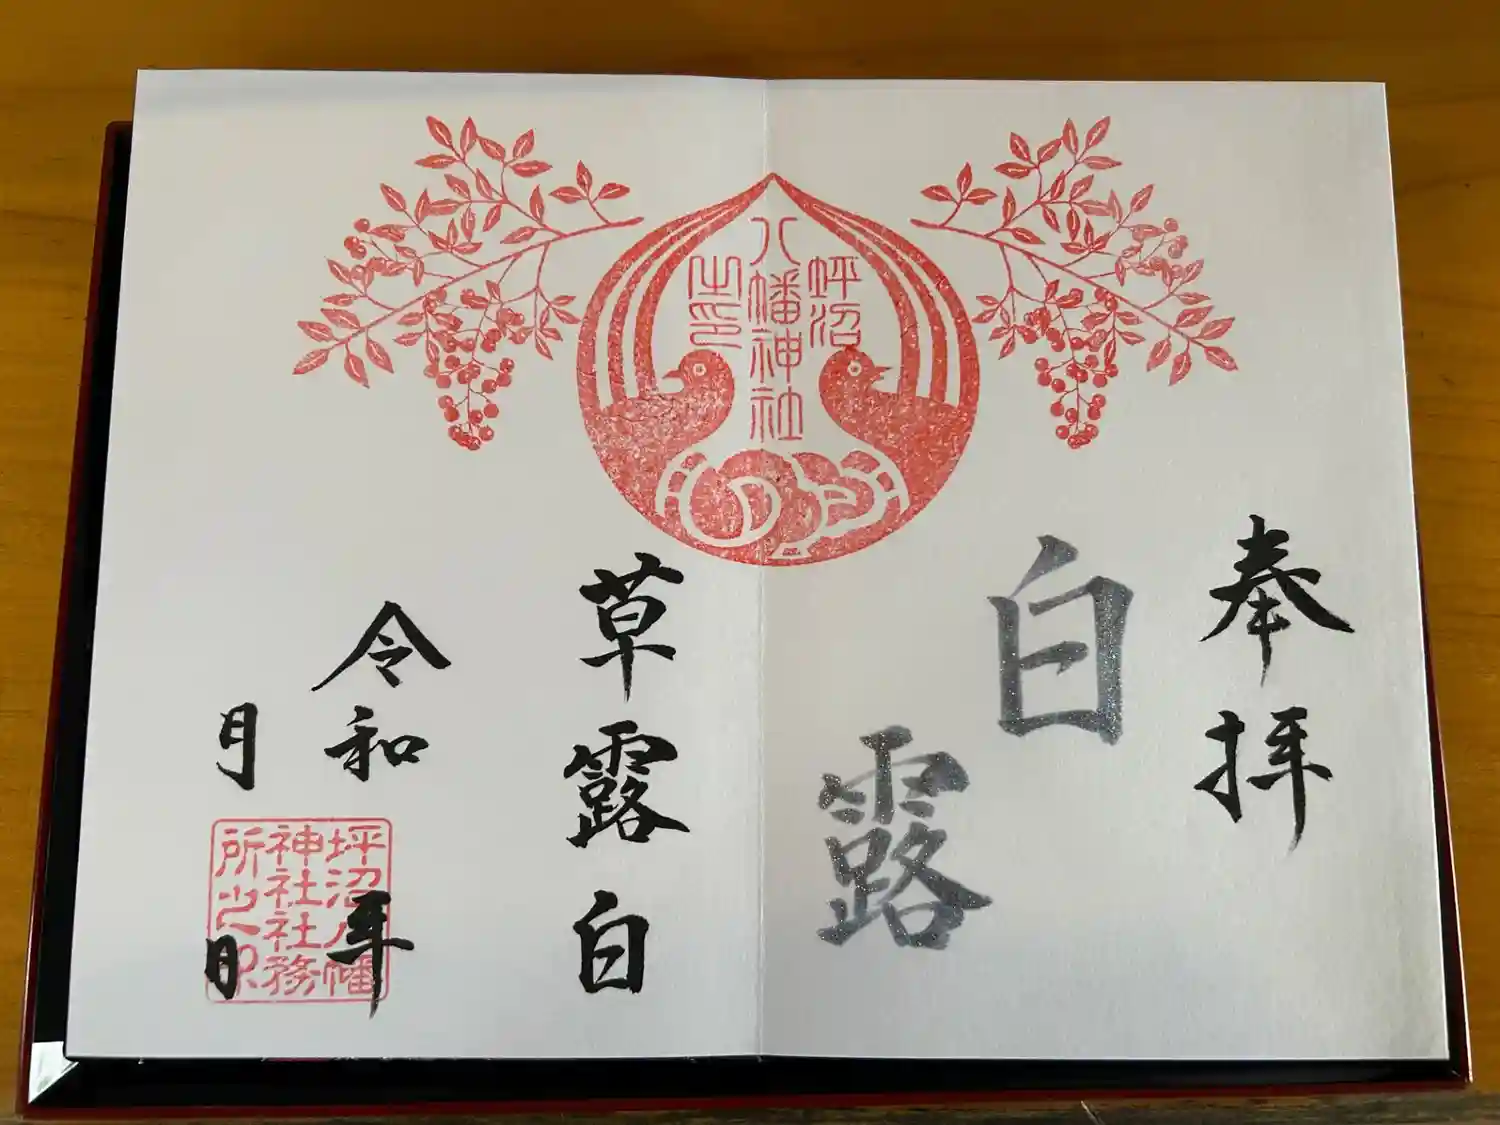 奉拝
白露
坪沼
八幡神社
之印
草露白
令和 年
月 日
坪沼八幡
神社社務
所之印